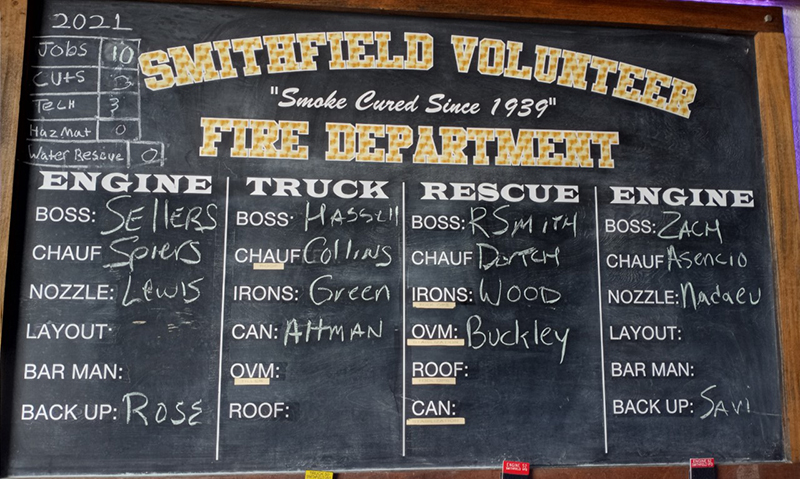 2021
Jobs 10
Cuts
Tech 3
HazMat 0
Water Rescue 0
SMITHFIELD VOLUNTEER
"Smoke Cured Since 1939"
FIRE DEPARTMENT
ENGINE
BOSS: SEllERS
CHAUF Spiers
NOZZLE: LEWIS
LAYOUT:
BAR MAN:
BACK UP: ROSE
TRUCK
BOSS:
CHAUF Collins
IRONS: Green
CAN: AHMAN
OVM:
ROOF:
RESCUE
BOSS: RSMITH
CHAUF
IRONS: WOOD
OVM: Buckley
ROOF:
CAN:
ENGINE
BOSS: ZACH
CHAUF ASENCIO
NOZZLE: Nadaeu
LAYOUT:
BAR MAN:
BACK UP: SAVi